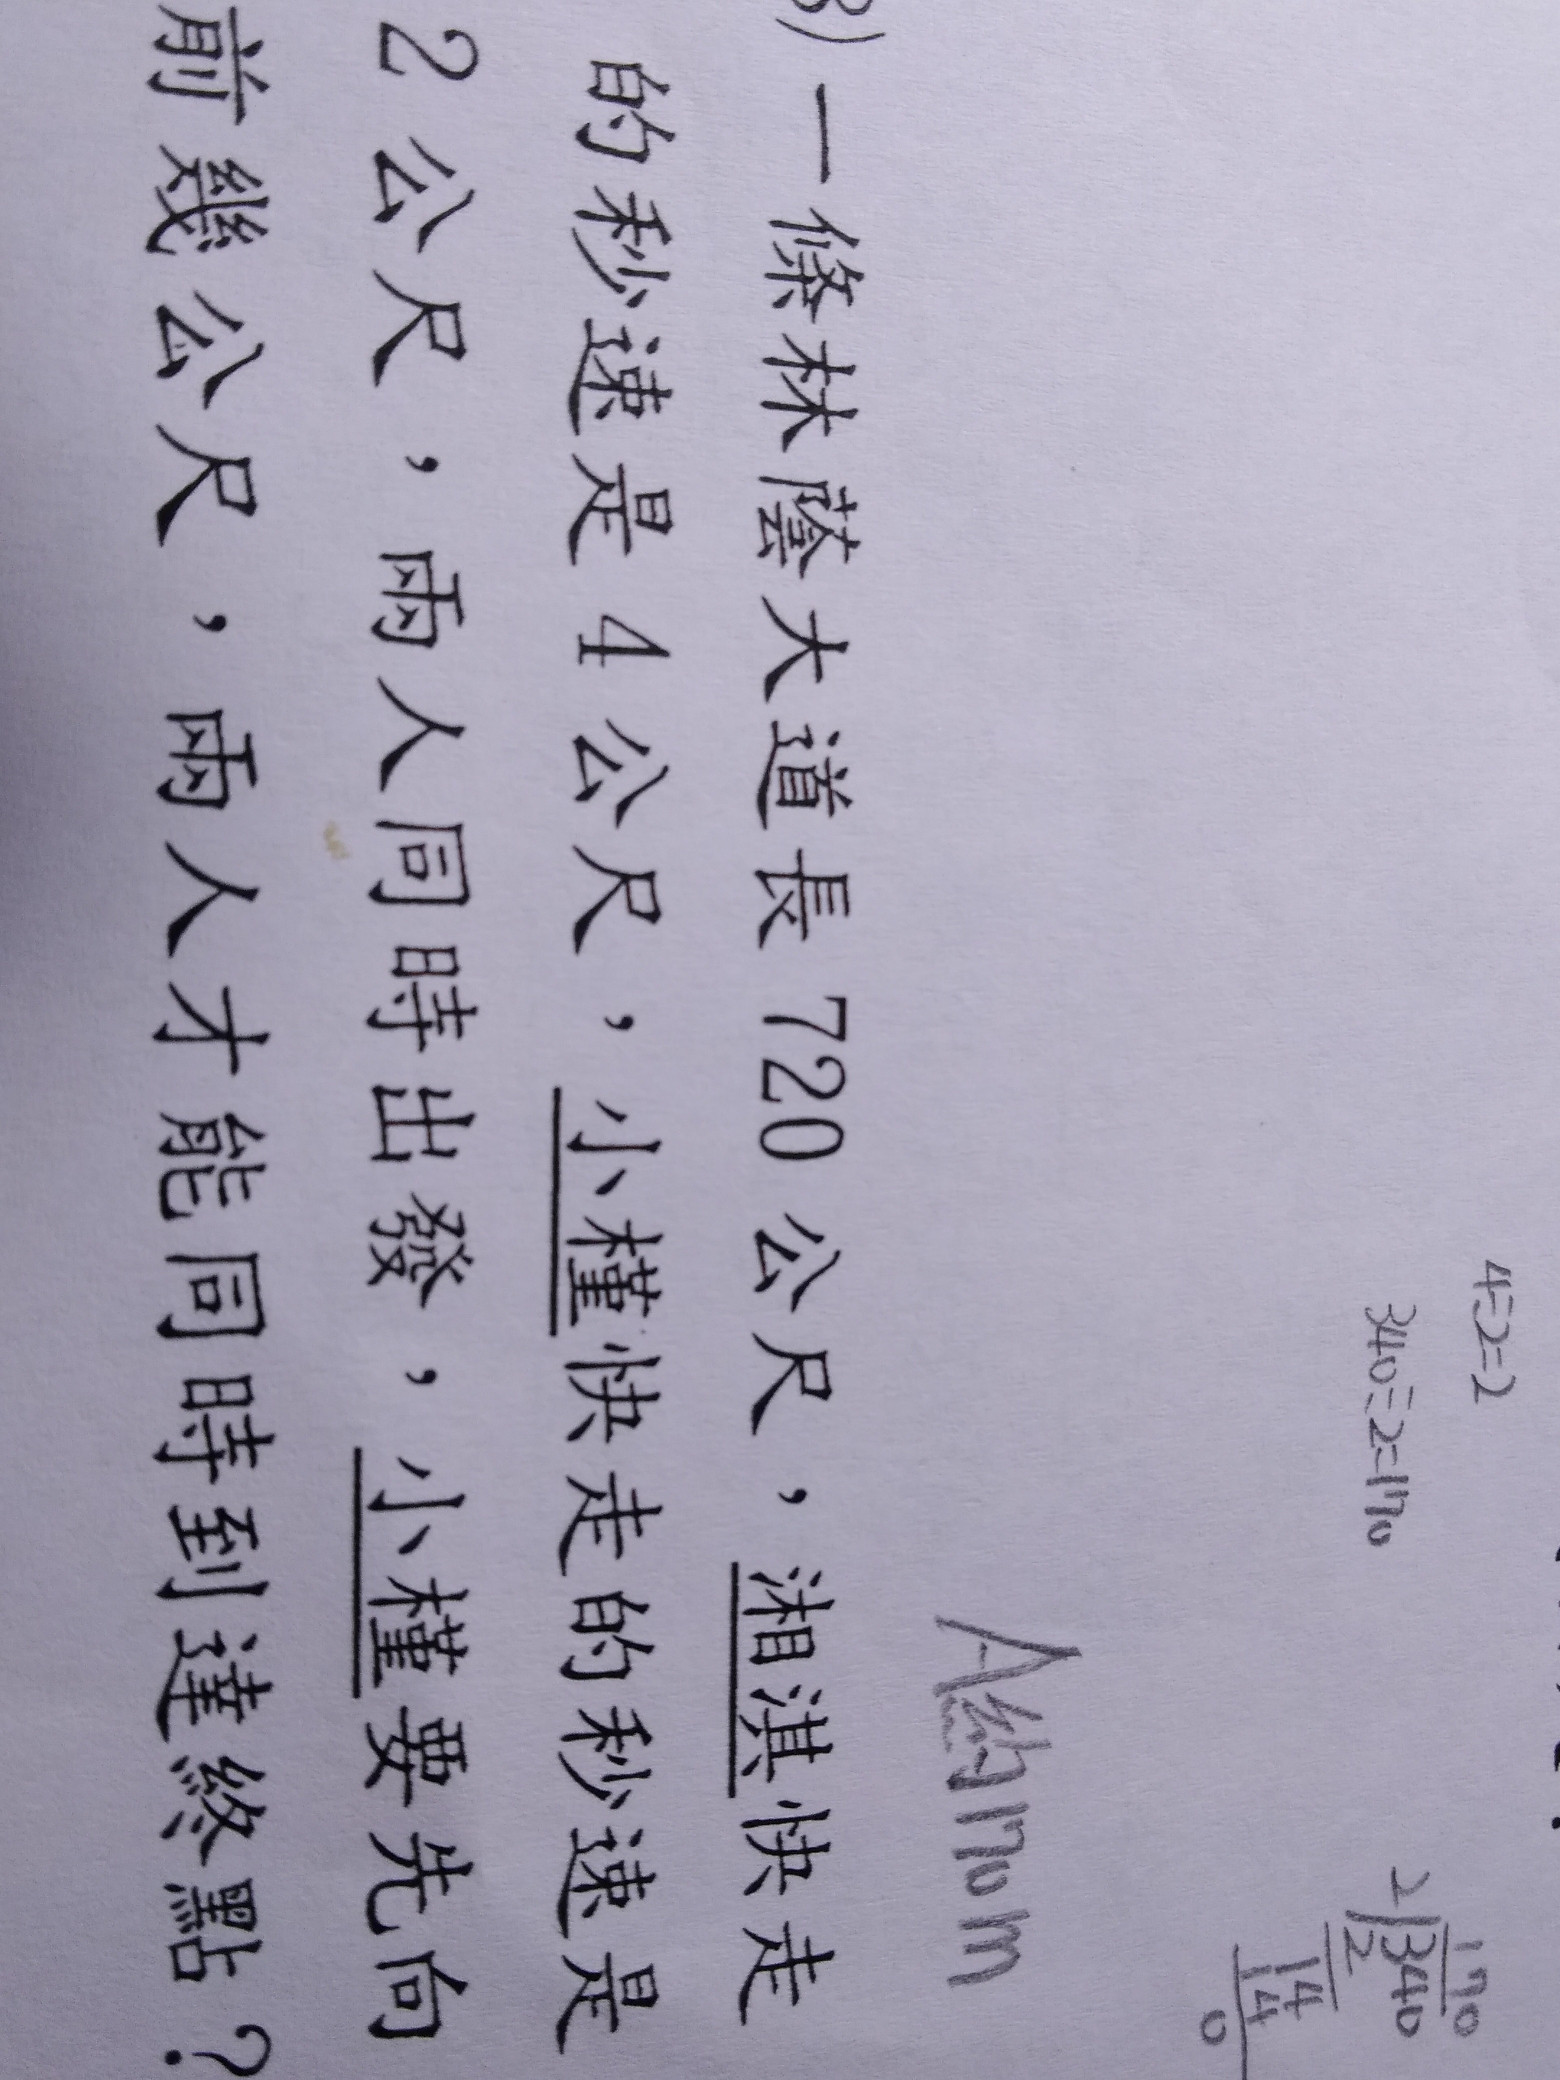 4÷2=2
340÷2=170
170
2)340
2
14
14
0
A約170m
) 一條林蔭大道長 720 公尺，湘淇快走
的秒速是 4 公尺，小槿快走的秒速是
2 公尺，兩人同時出發，小槿要先向
前幾公尺，兩人才能同時到達終點？